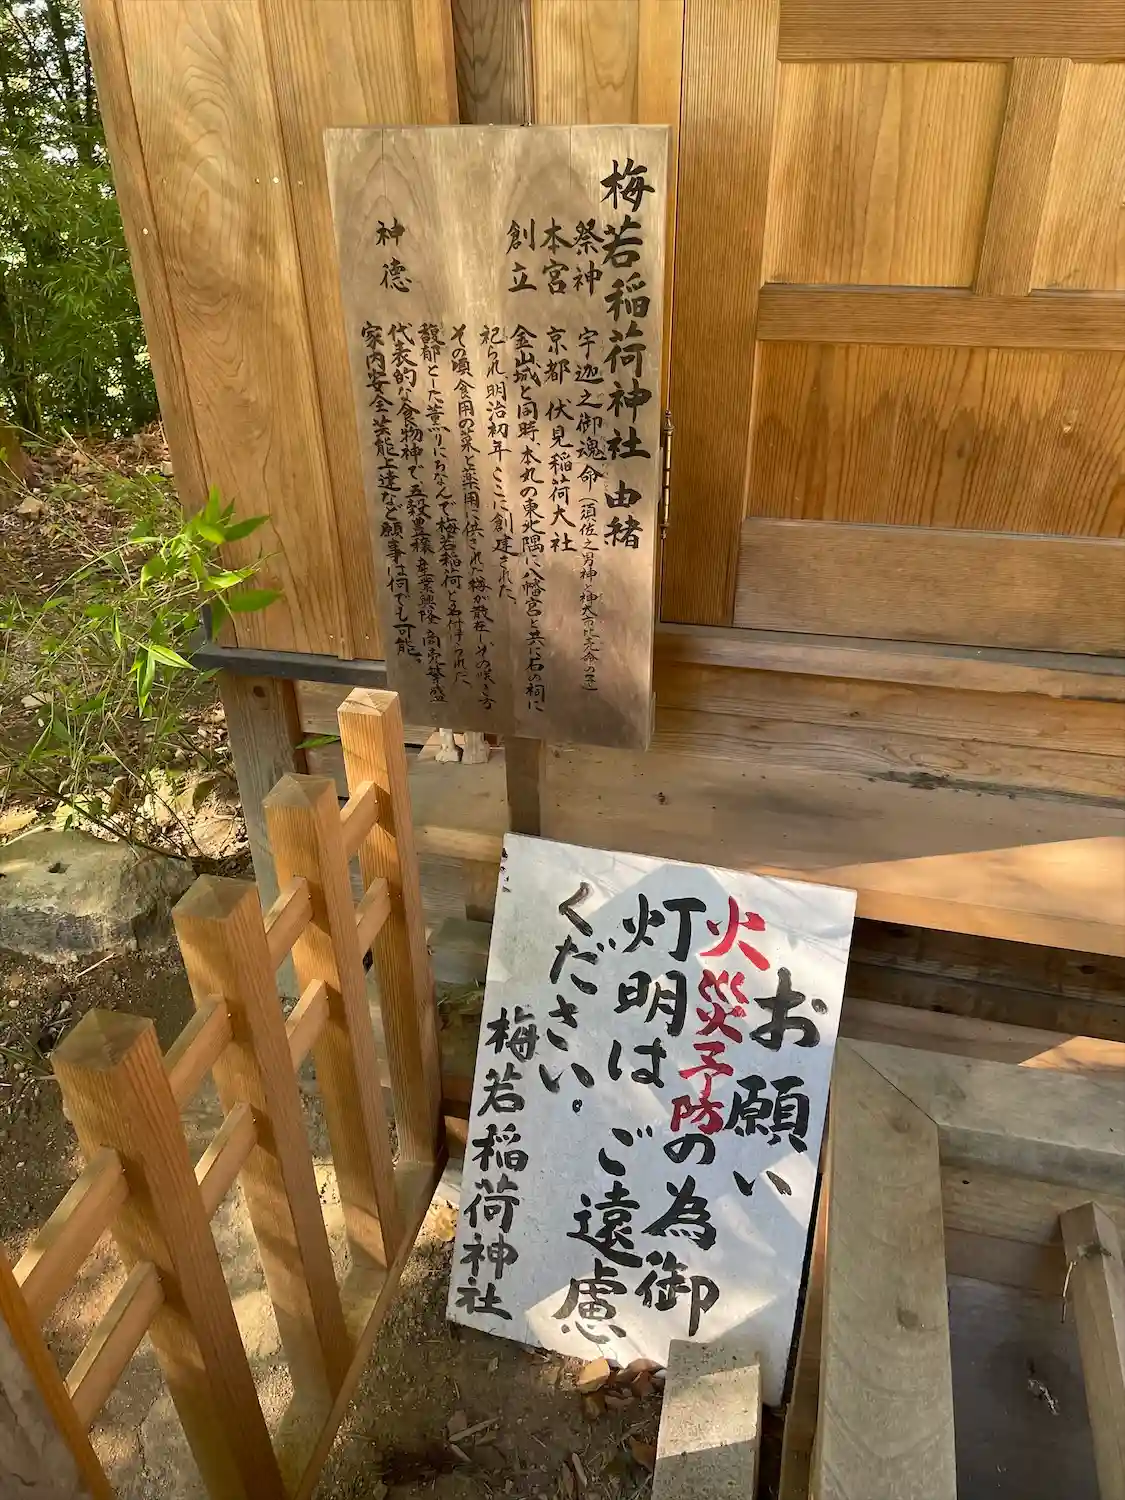 梅若稲荷神社 由緒
祭神 宇迦之御魂命(須佐之男神と神大市比売命の子)
本宮 京都 伏見稲荷大社
創立 金山城と同時、本丸の東北隅に八幡宮と共に石の祠に
祀られ、明治初年ここに創建された。
その頃食用の菜と薬用に供された梅が散在し、その咲き方
馥郁とした薫りにちなんで梅若稲荷と名付けられた。
神徳 代表的な食物神で五穀豊穣 産業興隆 商売繁盛
家内安全 芸能上達など願事は何でも可能。
お願い
火災予防の為御
灯明はご遠慮
ください。
梅若稲荷神社